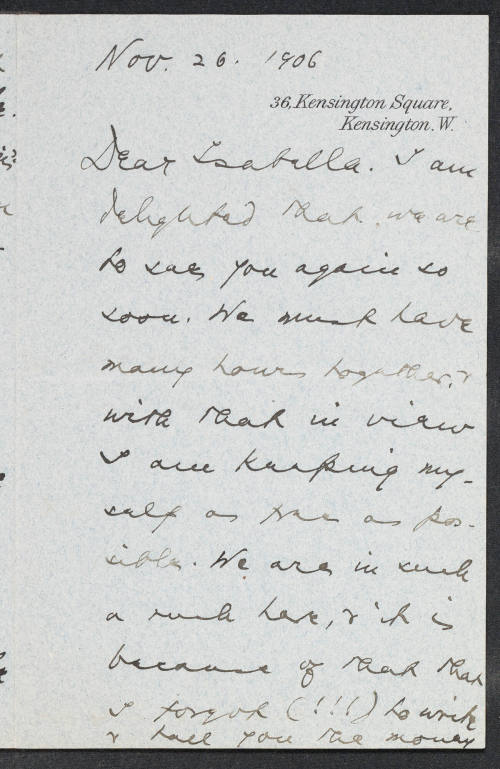 Nov. 26. 1906
36, Kensington Square,
Kensington. W.
Dear Isabella. I am
delighted that we are
to see you again so
soon. We must have
many hours together, &
with that in view
I am keeping my-
self as free as pos-
sible. We are in such
a rush here, & it is
because of that that
I forgot (!!!) to write
& tell you the money